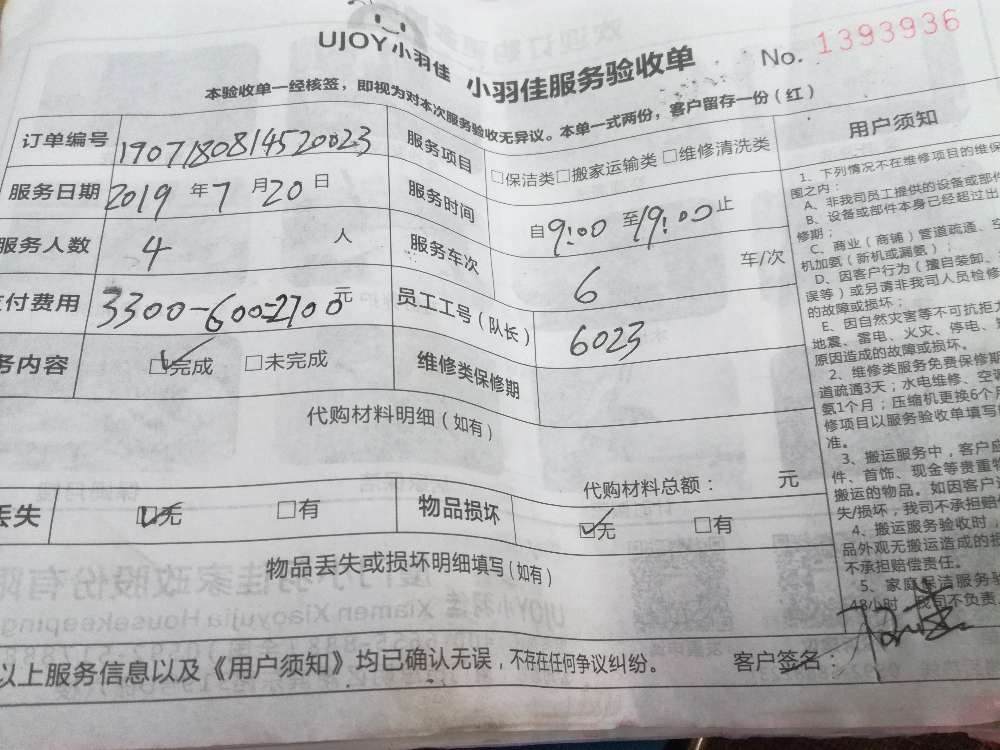 UJOY小羽佳 小羽佳服务验收单 No. 1393936
本验收单一经核签，即视为对本次服务验收无异议。本单一式两份，客户留存一份（红）
订单编号 1907180814520023 服务项目 □保洁类□搬家运输类 □维修清洗类
服务日期 2019 年 7 月 20 日 服务时间 自 9:00 至 19:00 止
服务人数 4 人 服务车次 6 车/次
付费用 3300-600=2700 元 员工工号（队长） 6023
务内容 ☑完成 □未完成 维修类保修期
代购材料明细（如有）
代购材料总额： 元
丢失 ☑无 □有 物品损坏 ☑无 □有
物品丢失或损坏明细填写（如有）
以上服务信息以及《用户须知》均已确认无误，不存在任何争议纠纷。 客户签名：
用户须知
1、下列情况不在维修项目的维保
围之内：
A、非我司员工提供的设备或部件
B、设备或部件本身已经超过出
修期；
C、商业（商铺）管道疏通、空
机加氨（新机或漏氨）；
D、因客户行为（擅自装卸、
误等）或另请非我司人员检修
的故障或损坏；
E、因自然灾害等不可抗拒
地震、雷电、火灾、停电、
原因造成的故障或损坏。
2、维修类服务免费保修期
道疏通3天；水电维修、空调
氨1个月；压缩机更换6个月
修项目以服务验收单填写
准。
3、搬运服务中，客户应
件、首饰、现金等贵重物
搬运的物品。如因客户
失/损坏，我司不承担赔
4、搬运服务验收时，
品外观无搬运造成的损
不承担赔偿责任。
5、家庭保洁服务验
48小时，我司不负责